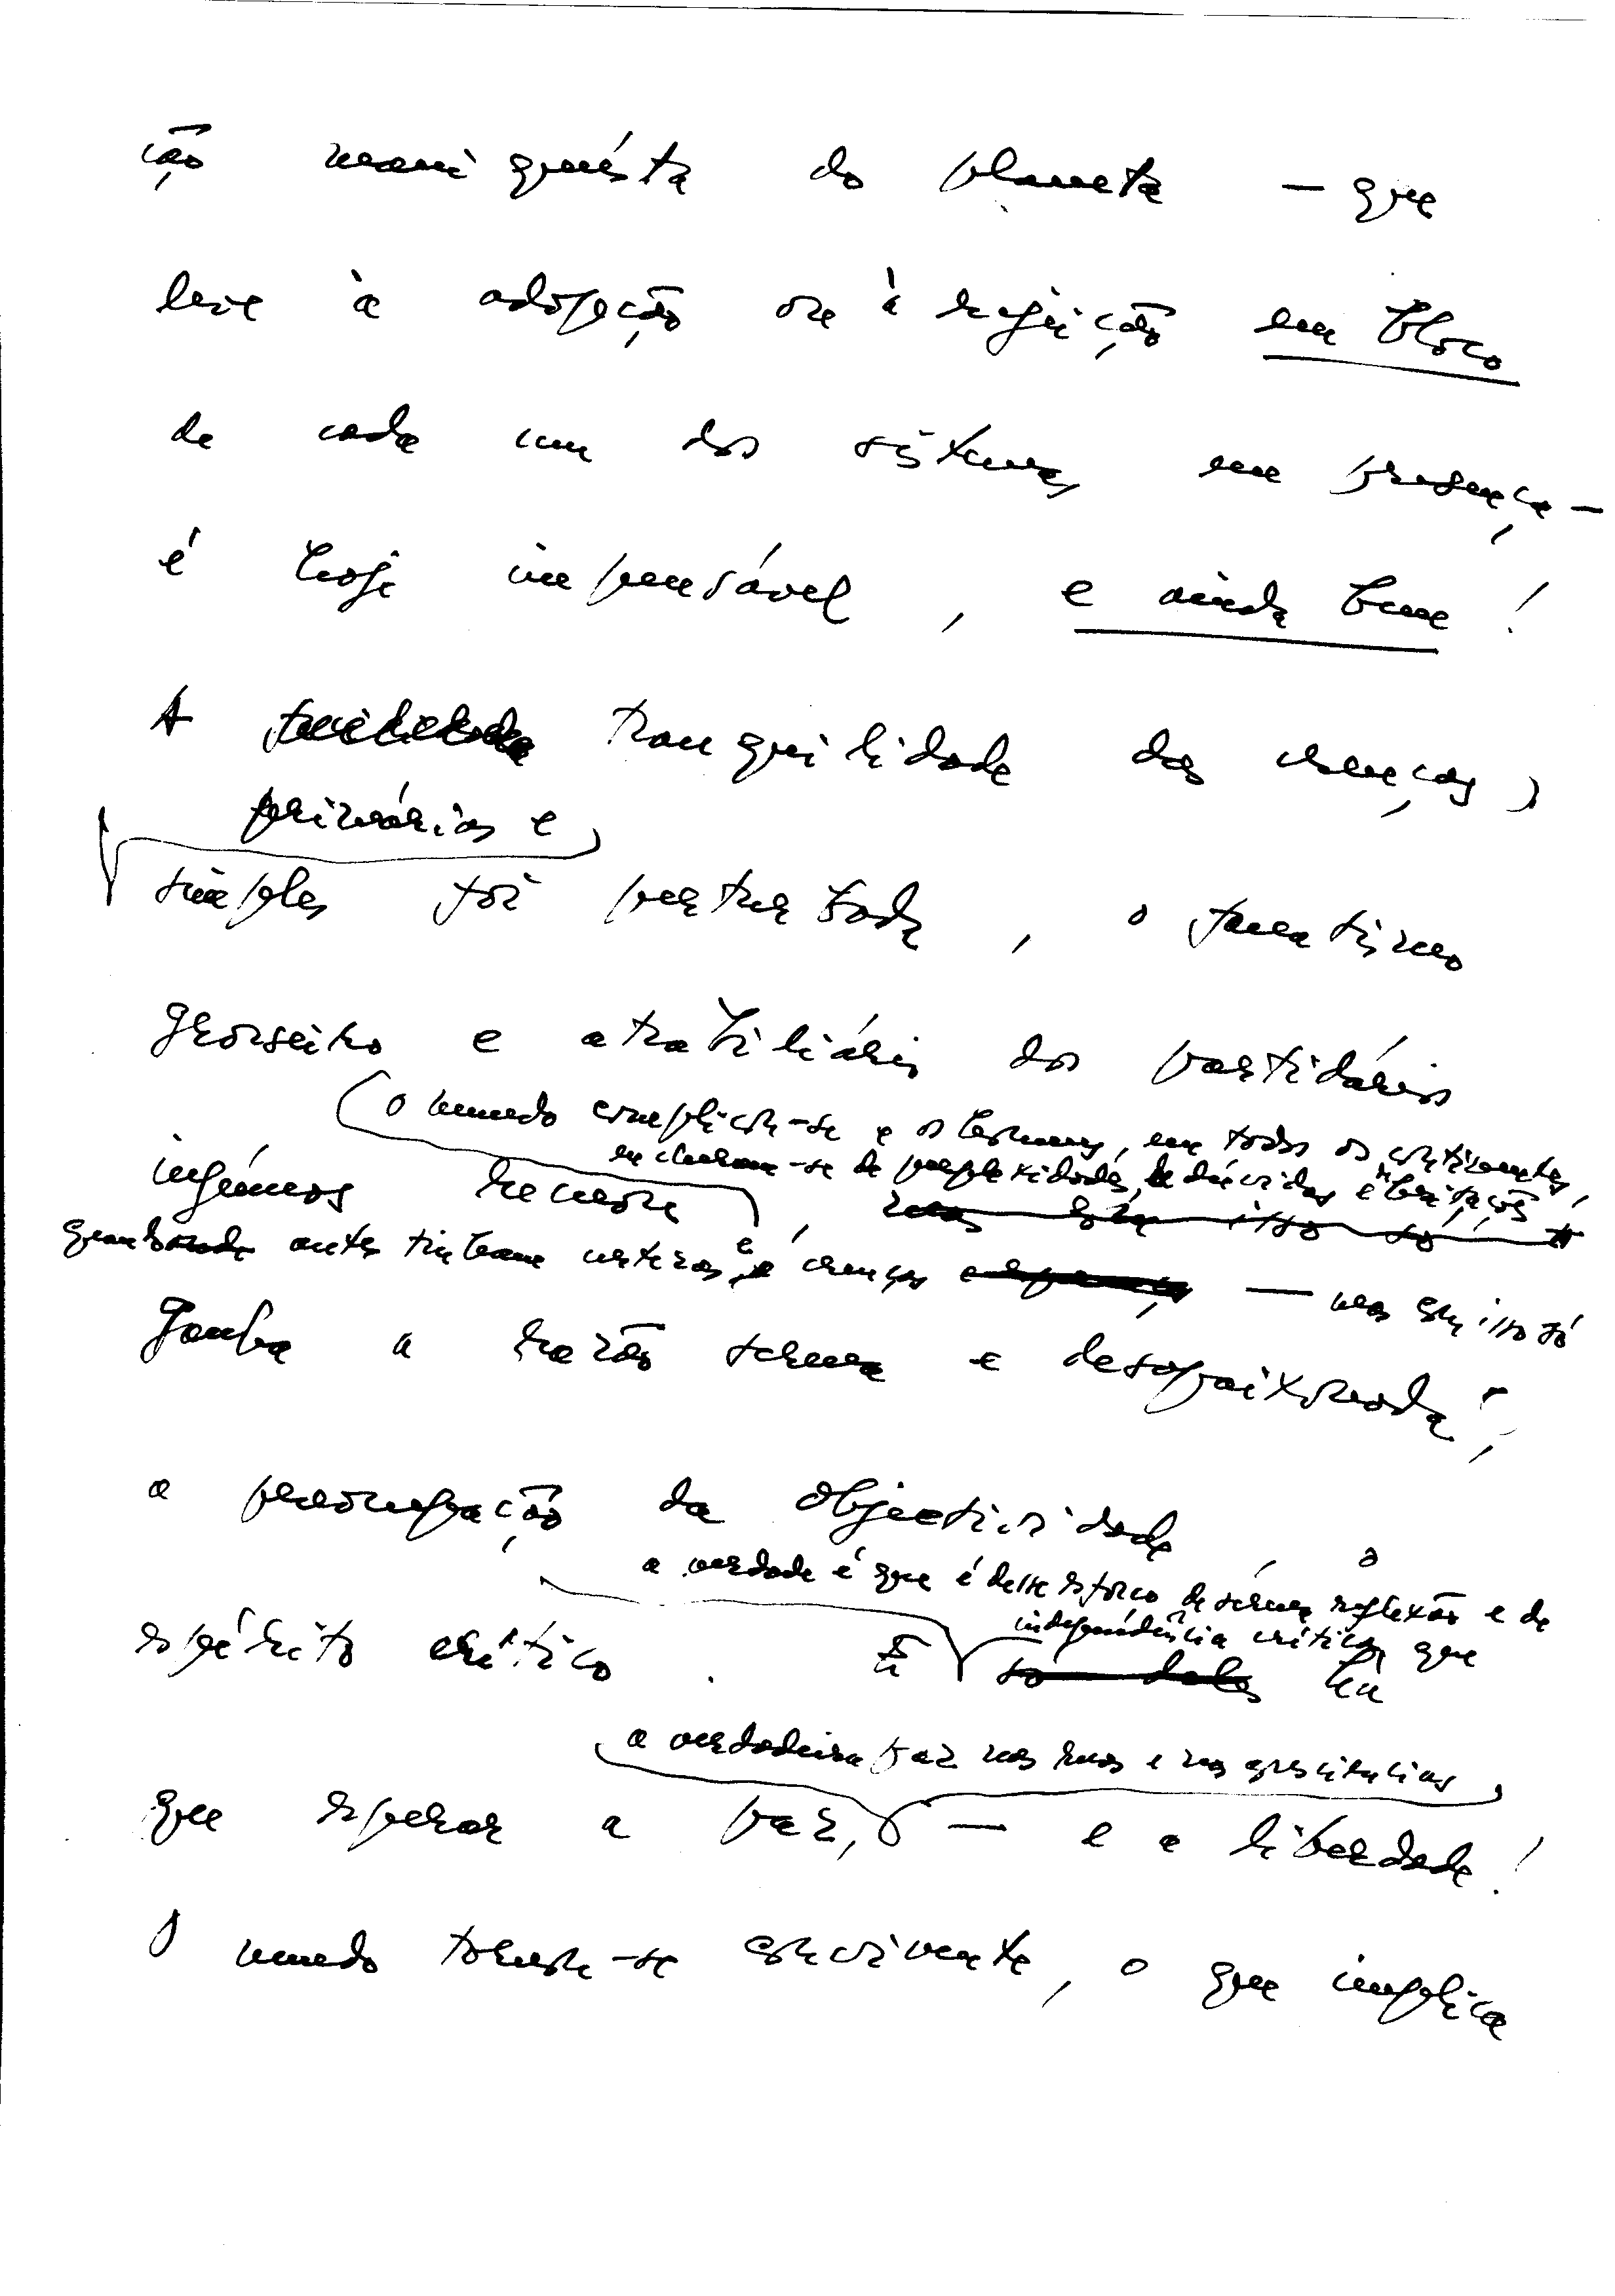 ção maniqueísta do planeta — que
leve à adopção ou à rejeição em bloco
de cada um dos sistemas em presença —
é hoje impensável, e ainda bem!
A tranquilidade das crenças
primárias e
simples foi perturbada, o fanatismo
grosseiro e atrabiliário dos partidários
o mundo complicou-se e os homens, em todos os continentes,
encheram-se de perplexidades, de dúvidas e hesitações
ingénuos recuou, mas com isso só
quando antes tinham certezas e crenças — mas com isso só
ganha a razão serena e desapaixonada,
a preocupação da objectividade, o
a verdade é que é desse esforço de serena reflexão e de
independência crítica que
espírito crítico. É só deles há
a verdadeira paz nas ruas e nas consciências
que esperar a paz, — e a liberdade!
O mundo tornou-se convivente, o que implica